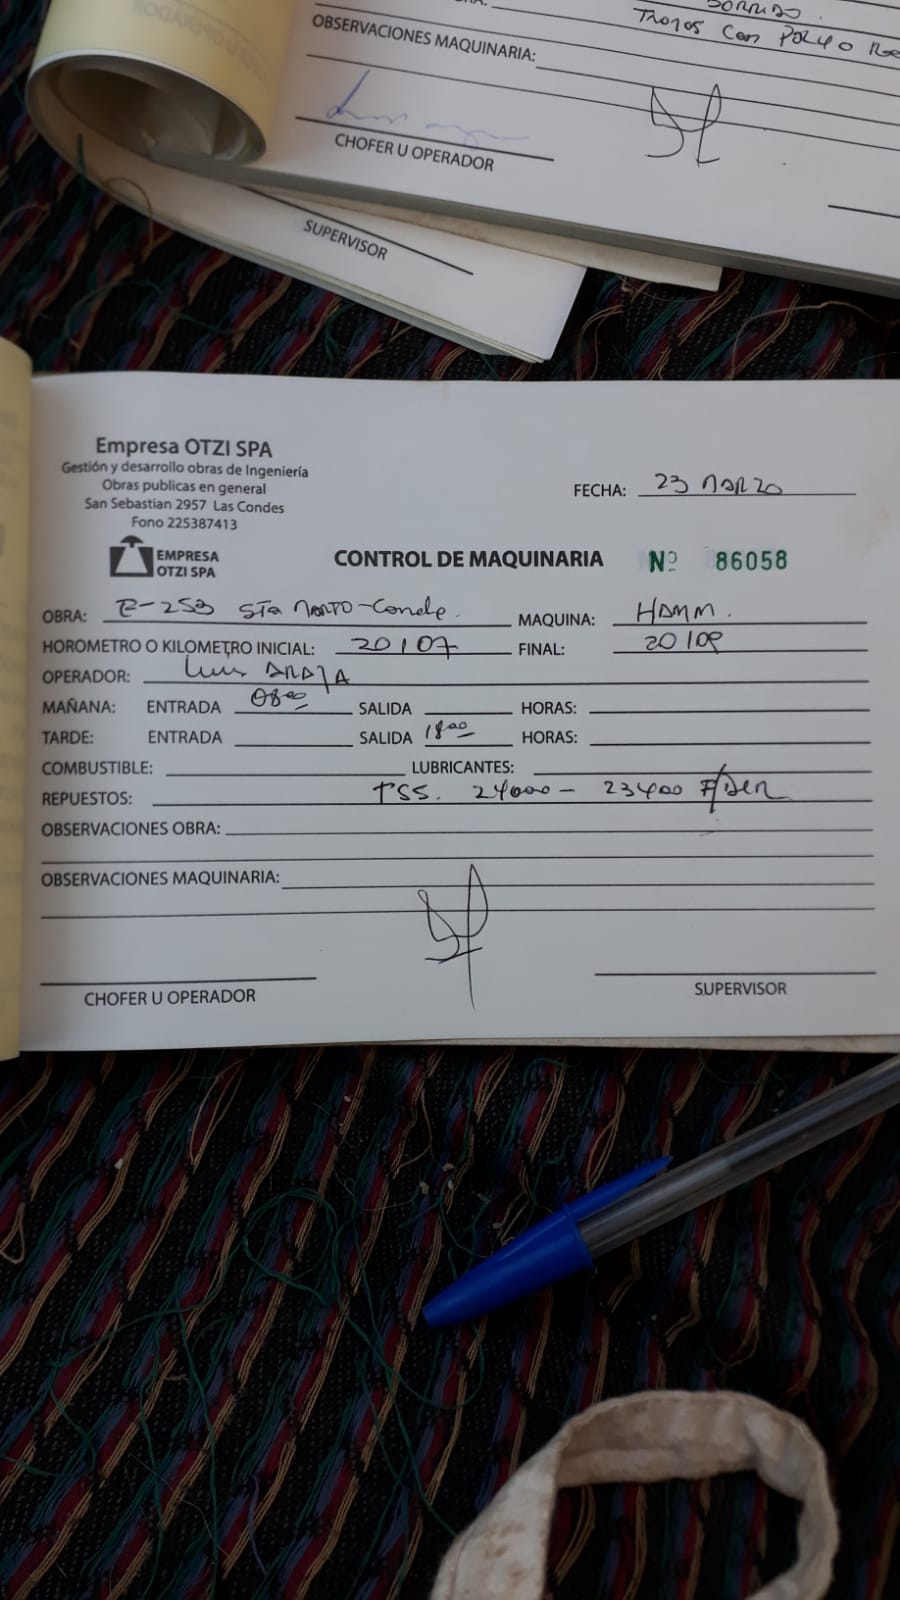 BORRIDO.
Tramos con Polvo Roc
OBSERVACIONES MAQUINARIA:
CHOFER U OPERADOR
SUPERVISOR
Empresa OTZI SPA
Gestión y desarrollo obras de Ingeniería
Obras publicas en general
San Sebastian 2957 Las Condes
Fono 225387413
EMPRESA
OTZI SPA
FECHA: 23 MARZO
CONTROL DE MAQUINARIA Nº 86058
OBRA: E-253 Sta MARTO-Conde. MAQUINA: HAMM.
HOROMETRO O KILOMETRO INICIAL: 20107 FINAL: 20109
OPERADOR: Luis ARAYA
MAÑANA: ENTRADA 08:00 SALIDA HORAS:
TARDE: ENTRADA SALIDA 18:00 HORAS:
COMBUSTIBLE: LUBRICANTES:
REPUESTOS: TSS. 24000 - 23400 F/DER
OBSERVACIONES OBRA:
OBSERVACIONES MAQUINARIA:
CHOFER U OPERADOR
SUPERVISOR